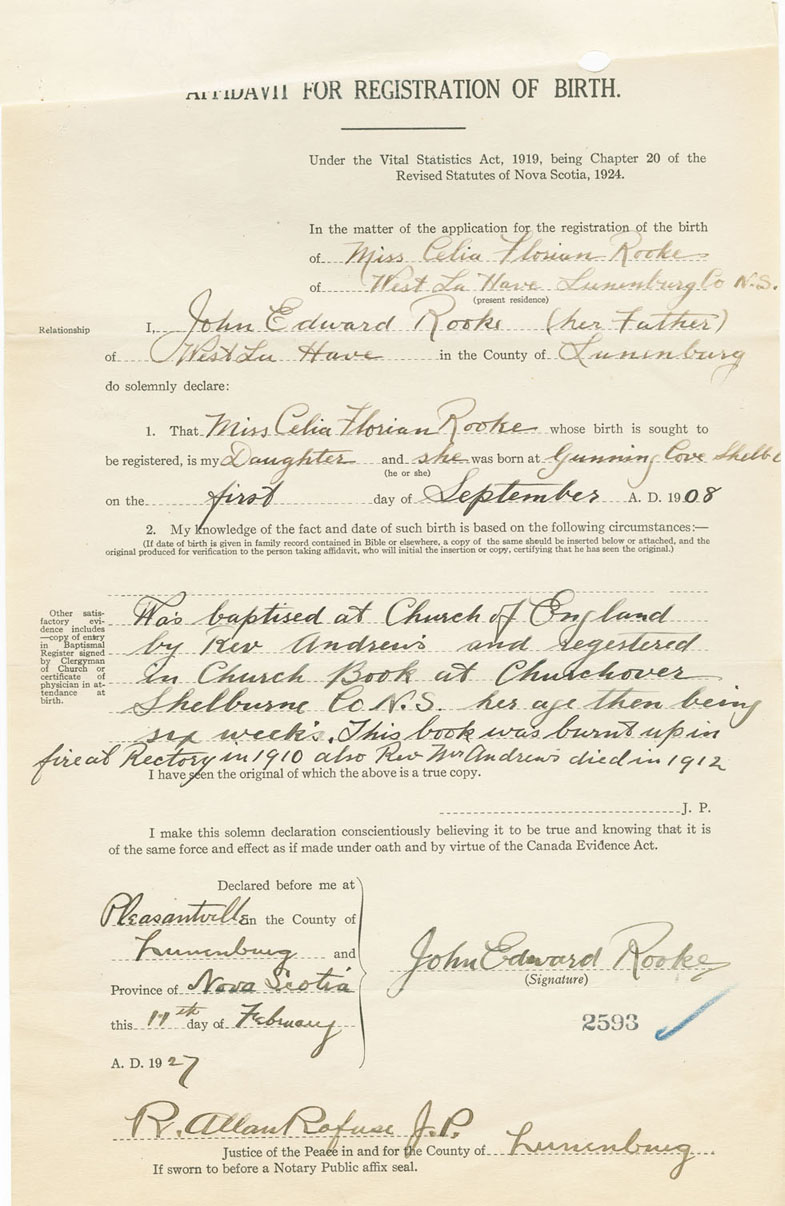 AFFIDAVIT FOR REGISTRATION OF BIRTH.
Under the Vital Statistics Act, 1919, being Chapter 20 of the
Revised Statutes of Nova Scotia, 1924.
In the matter of the application for the registration of the birth
of Miss Celia Florian Rooke
of West La Have Lunenburg Co N.S.
(present residence)
Relationship I, John Edward Rooke (her Father)
of West La Have in the County of Lunenburg
do solemnly declare:
1. That Miss Celia Florian Rooke whose birth is sought to
be registered, is my Daughter and she was born at Gunning Cove Shelb
(he or she)
on the first day of September A. D. 1908
2. My knowledge of the fact and date of such birth is based on the following circumstances:—
(If date of birth is given in family record contained in Bible or elsewhere, a copy of the same should be inserted below or attached, and the
original produced for verification to the person taking affidavit, who will initial the insertion or copy, certifying that he has seen the original.)
Other satis-
factory evi-
dence includes
—copy of entry
in Baptismal
Register signed
by Clergyman
of Church or
certificate of
physician in at-
tendance at
birth.
Was baptised at Church of England
by Rev Andrews and regestered
in Church Book at Churchover
Shelburne Co N.S. her age then being
six week's. This book was burnt up in
fire at Rectory in 1910 also Rev Mr Andrews died in 1912
I have seen the original of which the above is a true copy.
J. P.
I make this solemn declaration conscientiously believing it to be true and knowing that it is
of the same force and effect as if made under oath and by virtue of the Canada Evidence Act.
Declared before me at
Pleasantville in the County of
Lunenburg and
Province of Nova Scotia
this 17th day of February
A. D. 1927
John Edward Rooke
(Signature)
2593
R. Allan Rofuse J.P.
Justice of the Peace in and for the County of Lunenburg
If sworn to before a Notary Public affix seal.